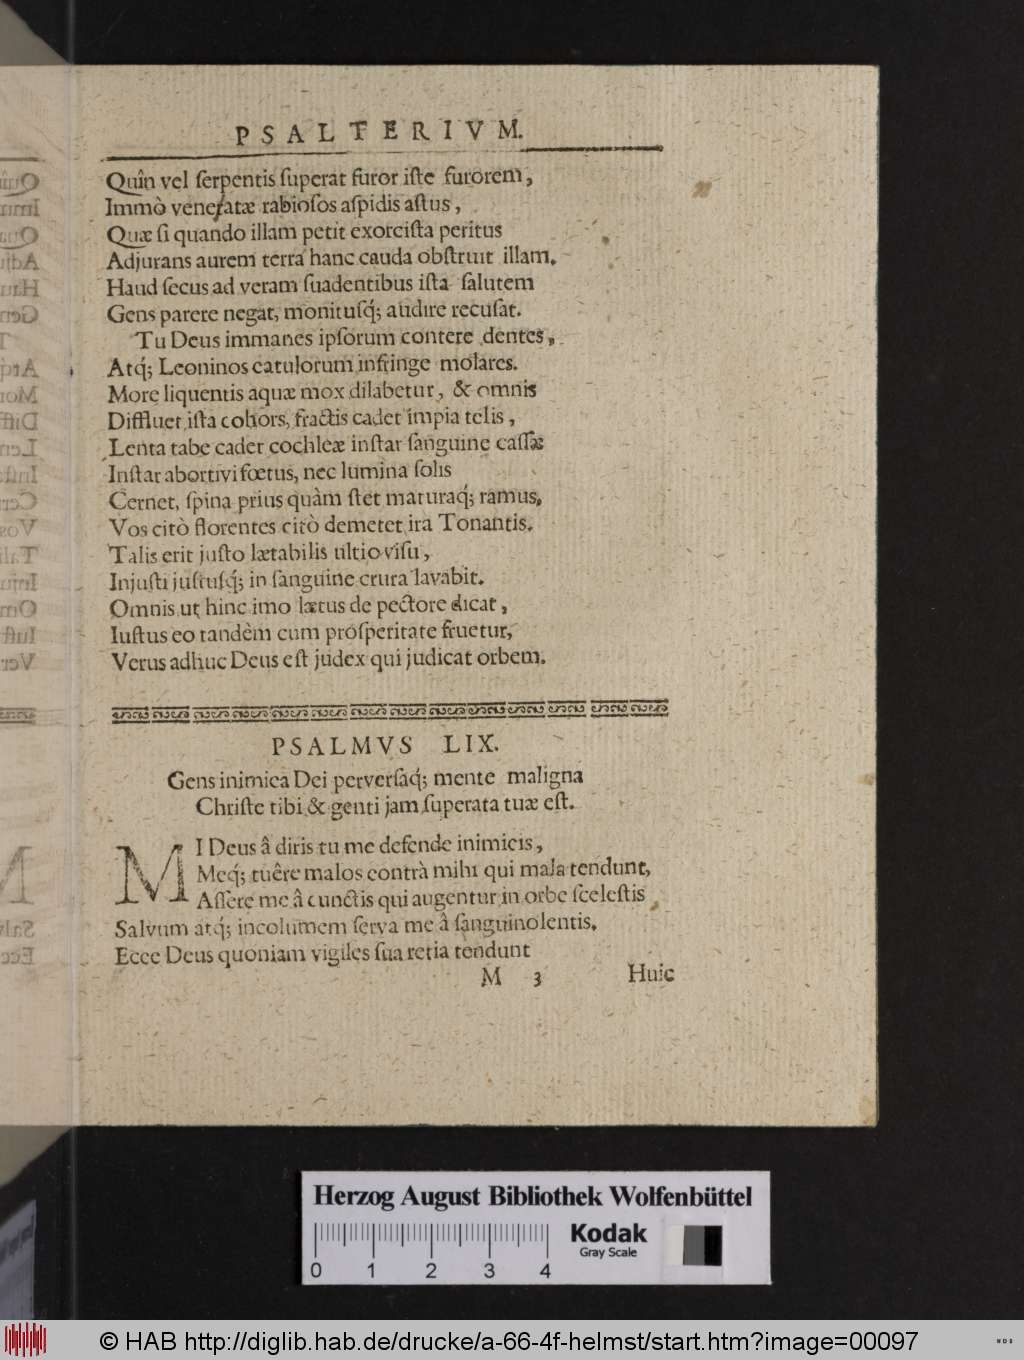 PSALTERIVM.
Quin vel ſerpentis ſuperat furor iſte furorem,
Immò venenatæ rabioſos aſpidis aſtus,
Quæ ſi quando illam petit exorciſta peritus
Adjurans aurem terra hanc cauda obſtruit illam.
Haud ſecus ad veram ſuadentibus iſta ſalutem
Gens parere negat, monituſq́; audire recuſat.
Tu Deus immanes ipſorum contere dentes,
Atq́; Leoninos catulorum infringe molares.
More liquentis aquæ mox dilabetur, & omnis
Diffluet iſta cohors, fractis cadet impia telis,
Lenta tabe cadet cochleæ inſtar ſanguine caſſæ
Inſtar abortivi fœtus, nec lumina ſolis
Cernet, ſpina prius quàm ſtet maturaq́; ramus,
Vos citò florentes citò demetet ira Tonantis.
Talis erit juſto lætabilis ultio viſu,
Injuſti juſtuſq́; in ſanguine crura lavabit.
Omnis ut hinc imo lætus de pectore dicat,
Iuſtus eo tandèm cum proſperitate fruetur,
Verus adhuc Deus eſt judex qui judicat orbem.
PSALMVS LIX.
Gens inimica Dei perverſaq́; mente maligna
Chriſte tibi & genti jam ſuperata tuæ eſt.
MI Deus â diris tu me defende inimicis,
Meq́; tuêre malos contrà mihi qui mala tendunt,
Aſſere me â cunctis qui augentur in orbe ſceleſtis
Salvum atq́; incolumem ſerva me â ſanguinolentis.
Ecce Deus quoniam vigiles ſua retia tendunt
M 3 Huic
Herzog August Bibliothek Wolfenbüttel
Kodak
Gray Scale
0 1 2 3 4
© HAB http://diglib.hab.de/drucke/a-66-4f-helmst/start.htm?image=00097